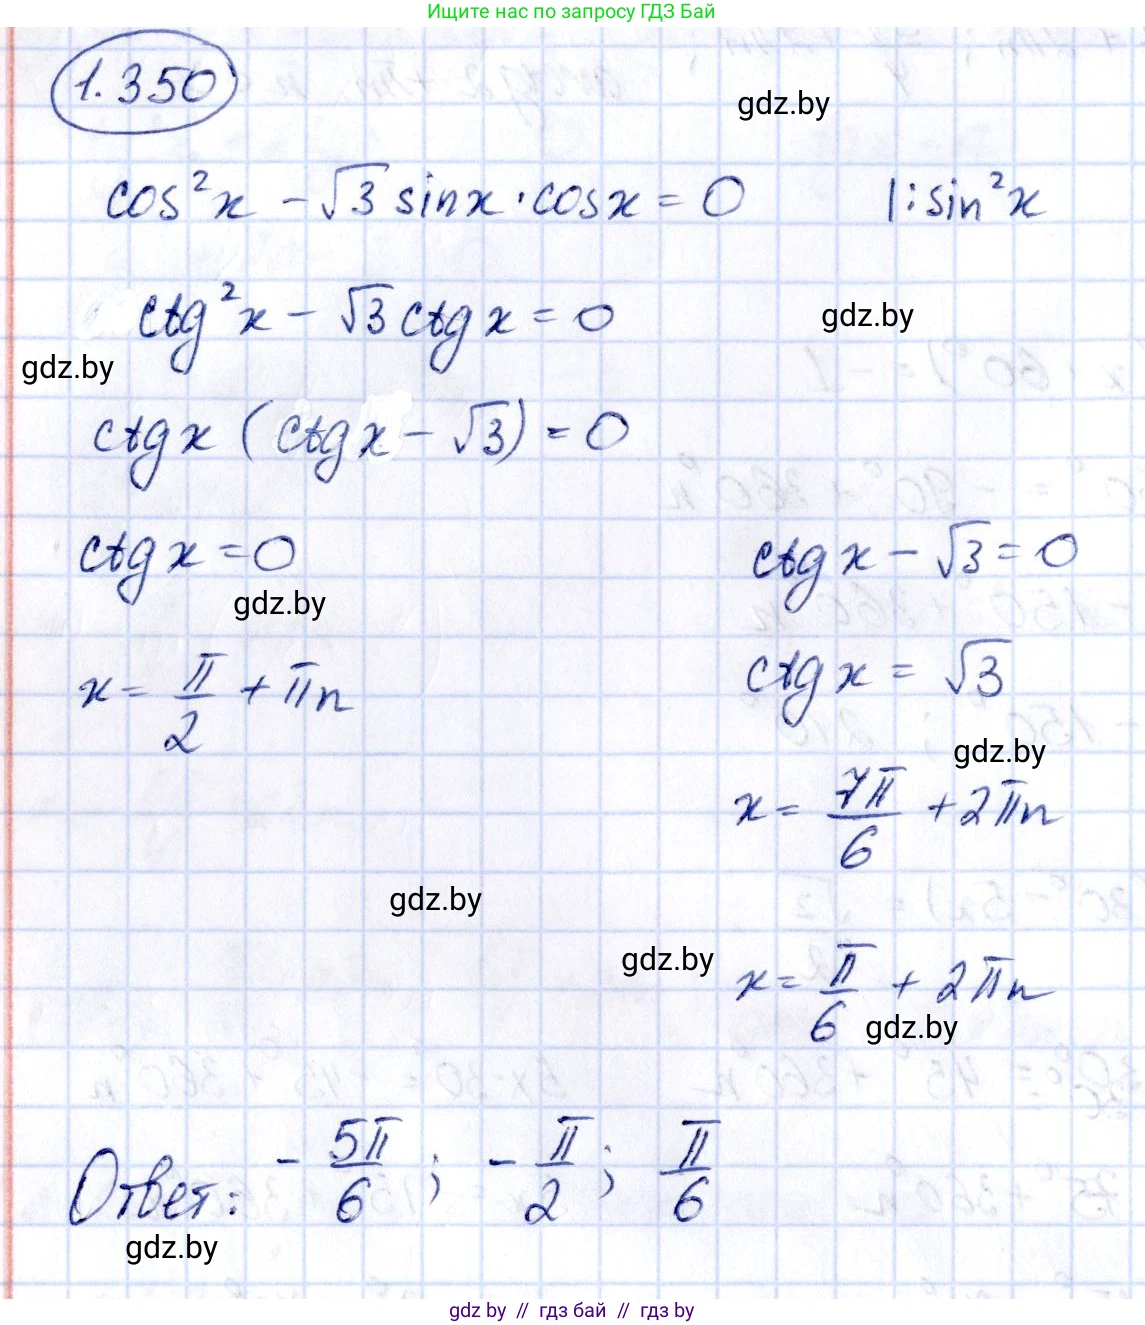 Ищите нас по запросу ГДЗ Бай
1.350
gdz.by
cos²x - √3 sinx·cosx = 0 |:sin²x
ctg²x - √3 ctgx = 0
gdz.by
gdz.by
ctgx (ctgx - √3) = 0
ctgx = 0 ctgx - √3 = 0
gdz.by
x = π/2 + πn ctgx = √3
gdz.by
x = 7π/6 + 2πn
gdz.by
gdz.by
x = π/6 + 2πn
gdz.by
Ответ: - 5π/6 ; - π/2 ; π/6
gdz.by
gdz by // гдз бай // гдз by